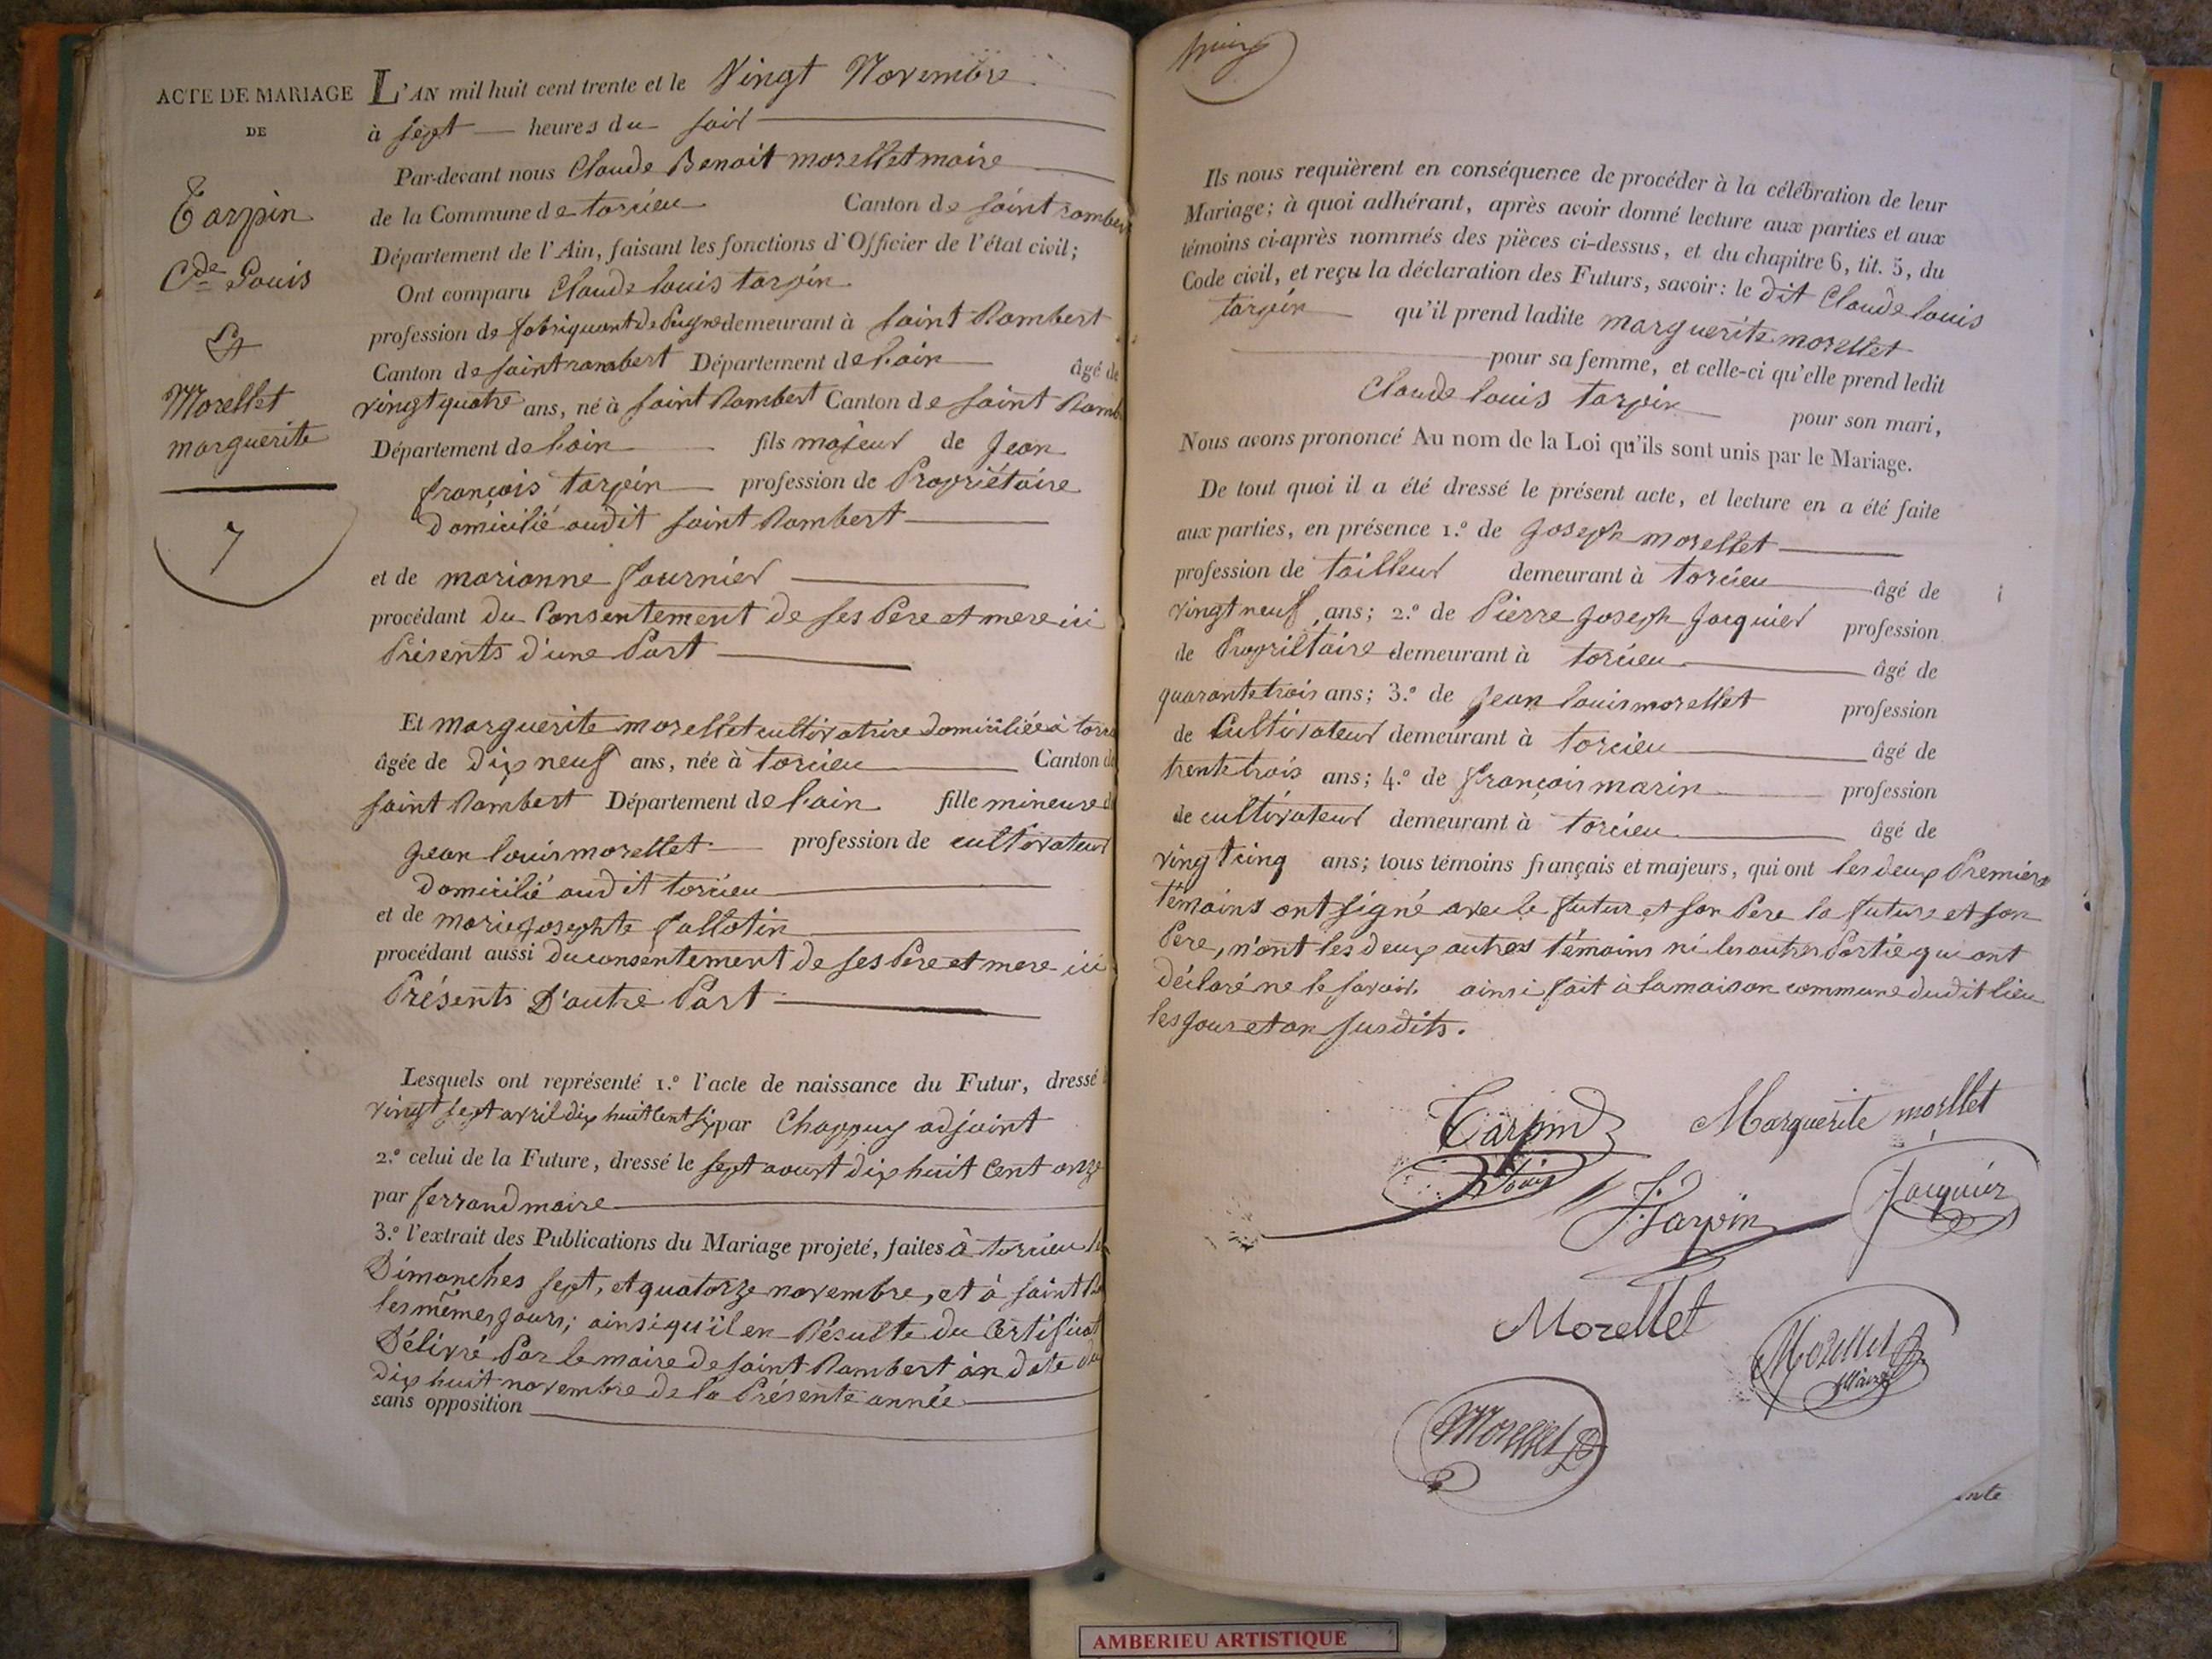 ACTE DE MARIAGE
DE
Tarpin
Cde Louis
Et
Morellet
marguerite
7
L'AN mil huit cent trente et le Vingt Novembre
à sept heures du soir
Par-devant nous Claude Benoit morellet maire
de la Commune de torcieu Canton de saint rambert
Département de l'Ain, faisant les fonctions d'Officier de l'état civil;
Ont comparu Claude louis tarpin
profession de fabriquant de Peigne demeurant à saint Rambert
Canton de saint rambert Département de l'ain âgé de
vingt quatre ans, né à saint Rambert Canton de saint Ramb
Département de l'ain fils majeur de Jean
françois tarpin profession de Propriétaire
domicilié audit saint Rambert
et de marianne fournier
procédant du Consentement de ses Pere et mere ici
Présents d'une Part
Et marguerite morellet cultivatrice domiciliée à torci
âgée de dix neuf ans, née à torcieu Canton de
saint Rambert Département de l'ain fille mineure d
Jean louis morellet profession de cultivateur
domicilié audit torcieu
et de marie josephte fallotin
procédant aussi du consentement de ses Pere et mere ici
Présents D'autre Part
Lesquels ont représenté 1.º l'acte de naissance du Futur, dressé
vingt sept avril dix huit Cent six par Chappuy adjoint
2.º celui de la Future, dressé le sept aoust dix huit Cent onze
par ferrand maire
3.º l'extrait des Publications du Mariage projeté, faites à torcieu les
Dimanches sept, et quatorze novembre, et à saint R
les mêmes jours; ainsi qu'il en Résulte du Certificat
Délivré Par le maire de saint Rambert en date du
dix huit novembre de la Présente année
sans opposition
Ils nous requièrent en conséquence de procéder à la célébration de leur
Mariage; à quoi adhérant, après avoir donné lecture aux parties et aux
témoins ci-après nommés des pièces ci-dessus, et du chapitre 6, tit. 5, du
Code civil, et reçu la déclaration des Futurs, savoir: le dit Claude louis
tarpin qu'il prend ladite marguerite morellet
pour sa femme, et celle-ci qu'elle prend ledit
Claude louis tarpin pour son mari,
Nous avons prononcé Au nom de la Loi qu'ils sont unis par le Mariage.
De tout quoi il a été dressé le présent acte, et lecture en a été faite
aux parties, en présence 1.º de Joseph morellet
profession de tailleur demeurant à torcieu âgé de
vingt neuf ans; 2.º de Pierre Joseph Jacquier profession
de Propriétaire demeurant à torcieu âgé de
quarante trois ans; 3.º de Jean louis morellet profession
de Cultivateur demeurant à torcieu âgé de
trente trois ans; 4.º de françois marin profession
de cultivateur demeurant à torcieu âgé de
vingt cinq ans; tous témoins français et majeurs, qui ont les deux Premiers
témoins ont signé avec le futur et son Pere la future et son
Pere, n'ont les deux autres témoins ni les autres Partie qui ont
déclaré ne le savoir. ainsi fait à la maison commune dudit lieu
les jour et an susdits.
Tarpin Marguerite morllet
Louis
Tarpin Jacquier
Morellet
Morellet
Maire
Morellet
AMBERIEU ARTISTIQUE